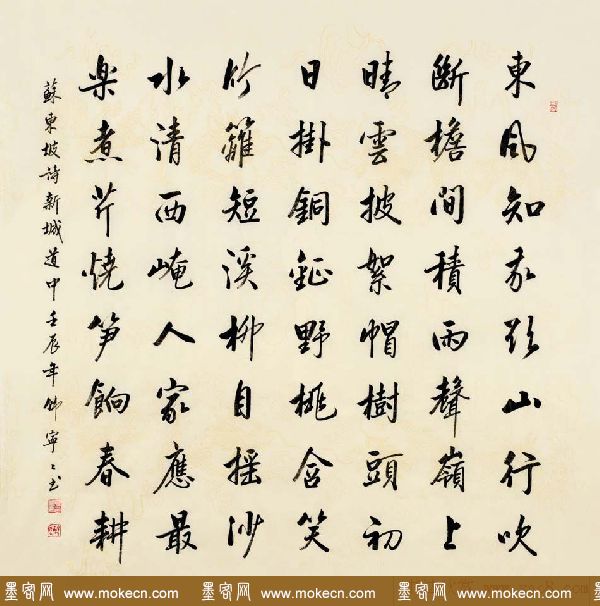 東风知我欲山行吹
斷檐間積雨聲嶺上
晴雲披絮帽樹頭初
日掛銅鉦野桃含笑
竹籬短溪柳自摇沙
水清西崦人家應最
楽煮芹燒笋餉春耕
蘇東坡詩新城道中 壬辰年 寧々书
墨客网 www.mokecn.com 墨客网 www.mokecn.com 墨客网 www.mokecn.com